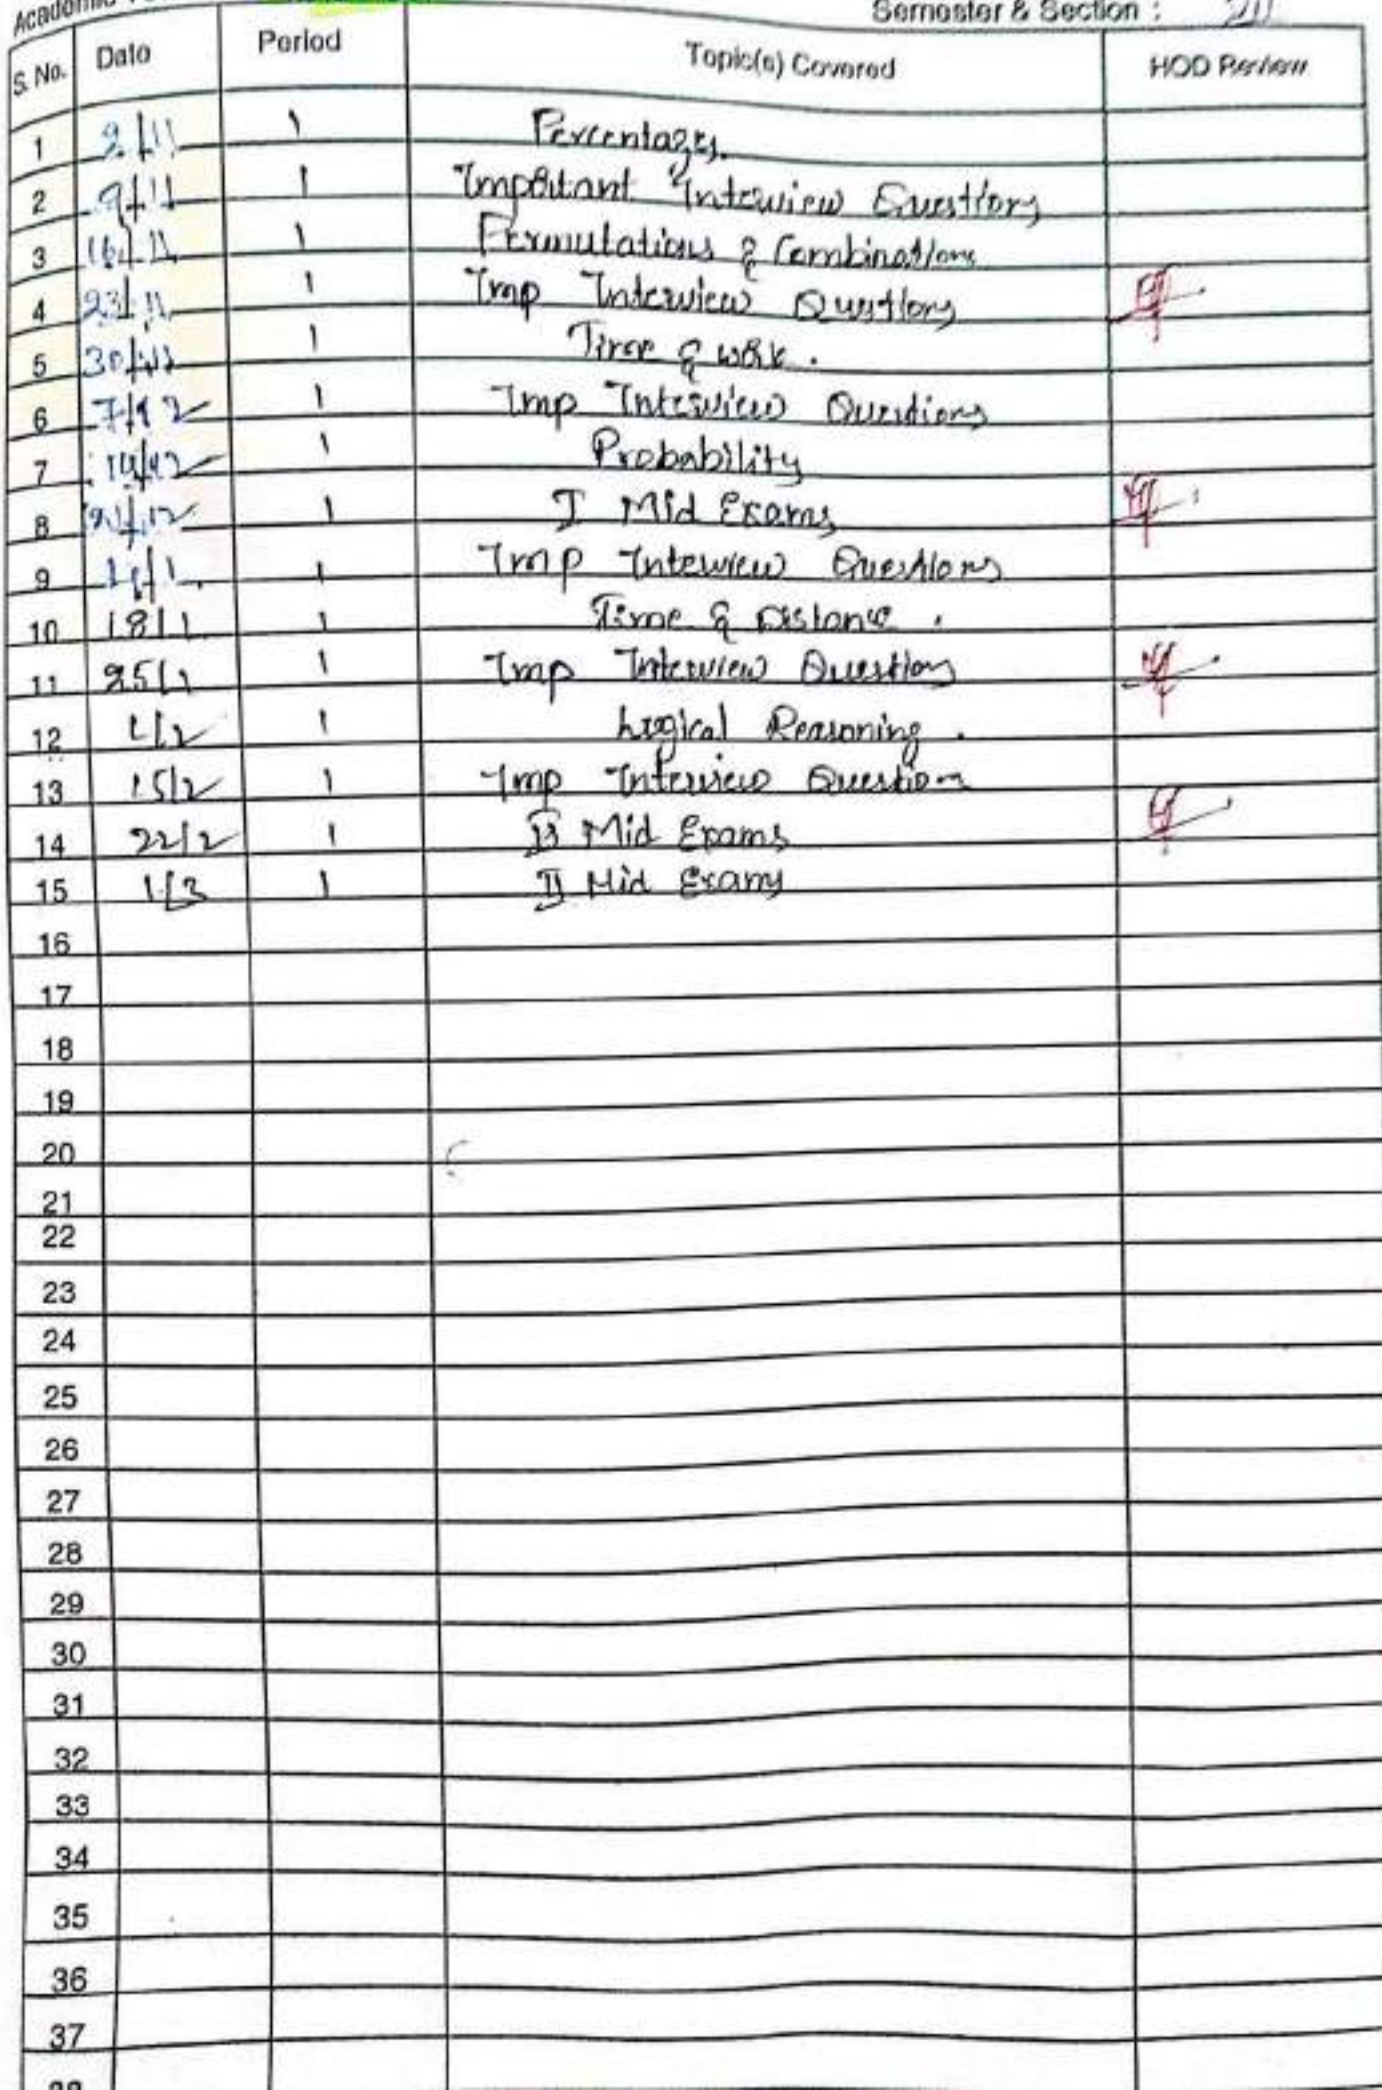 Semester & Section :
S. No. Date Period Topic(s) Covered HOD Review
1 2/11 1 Percentages.
2 9/11 1 Important Interview Questions
3 16/11 1 Permutations & Combinations
4 23/11 1 Imp Interview Questions
5 30/11 1 Time & work .
6 7/12 1 Imp Interview Questions
7 14/12 1 Probability
8 21/12 1 I Mid Exams
9 1 Imp Interview Questions
10 18/1 1 Time & Distance .
11 25/1 1 Imp Interview Question
12 1/2 1 Logical Reasoning .
13 15/2 1 Imp Interview Question
14 22/2 1 II Mid Exams
15 1/3 1 II Mid Exams
16
17
18
19
20
21
22
23
24
25
26
27
28
29
30
31
32
33
34
35
36
37